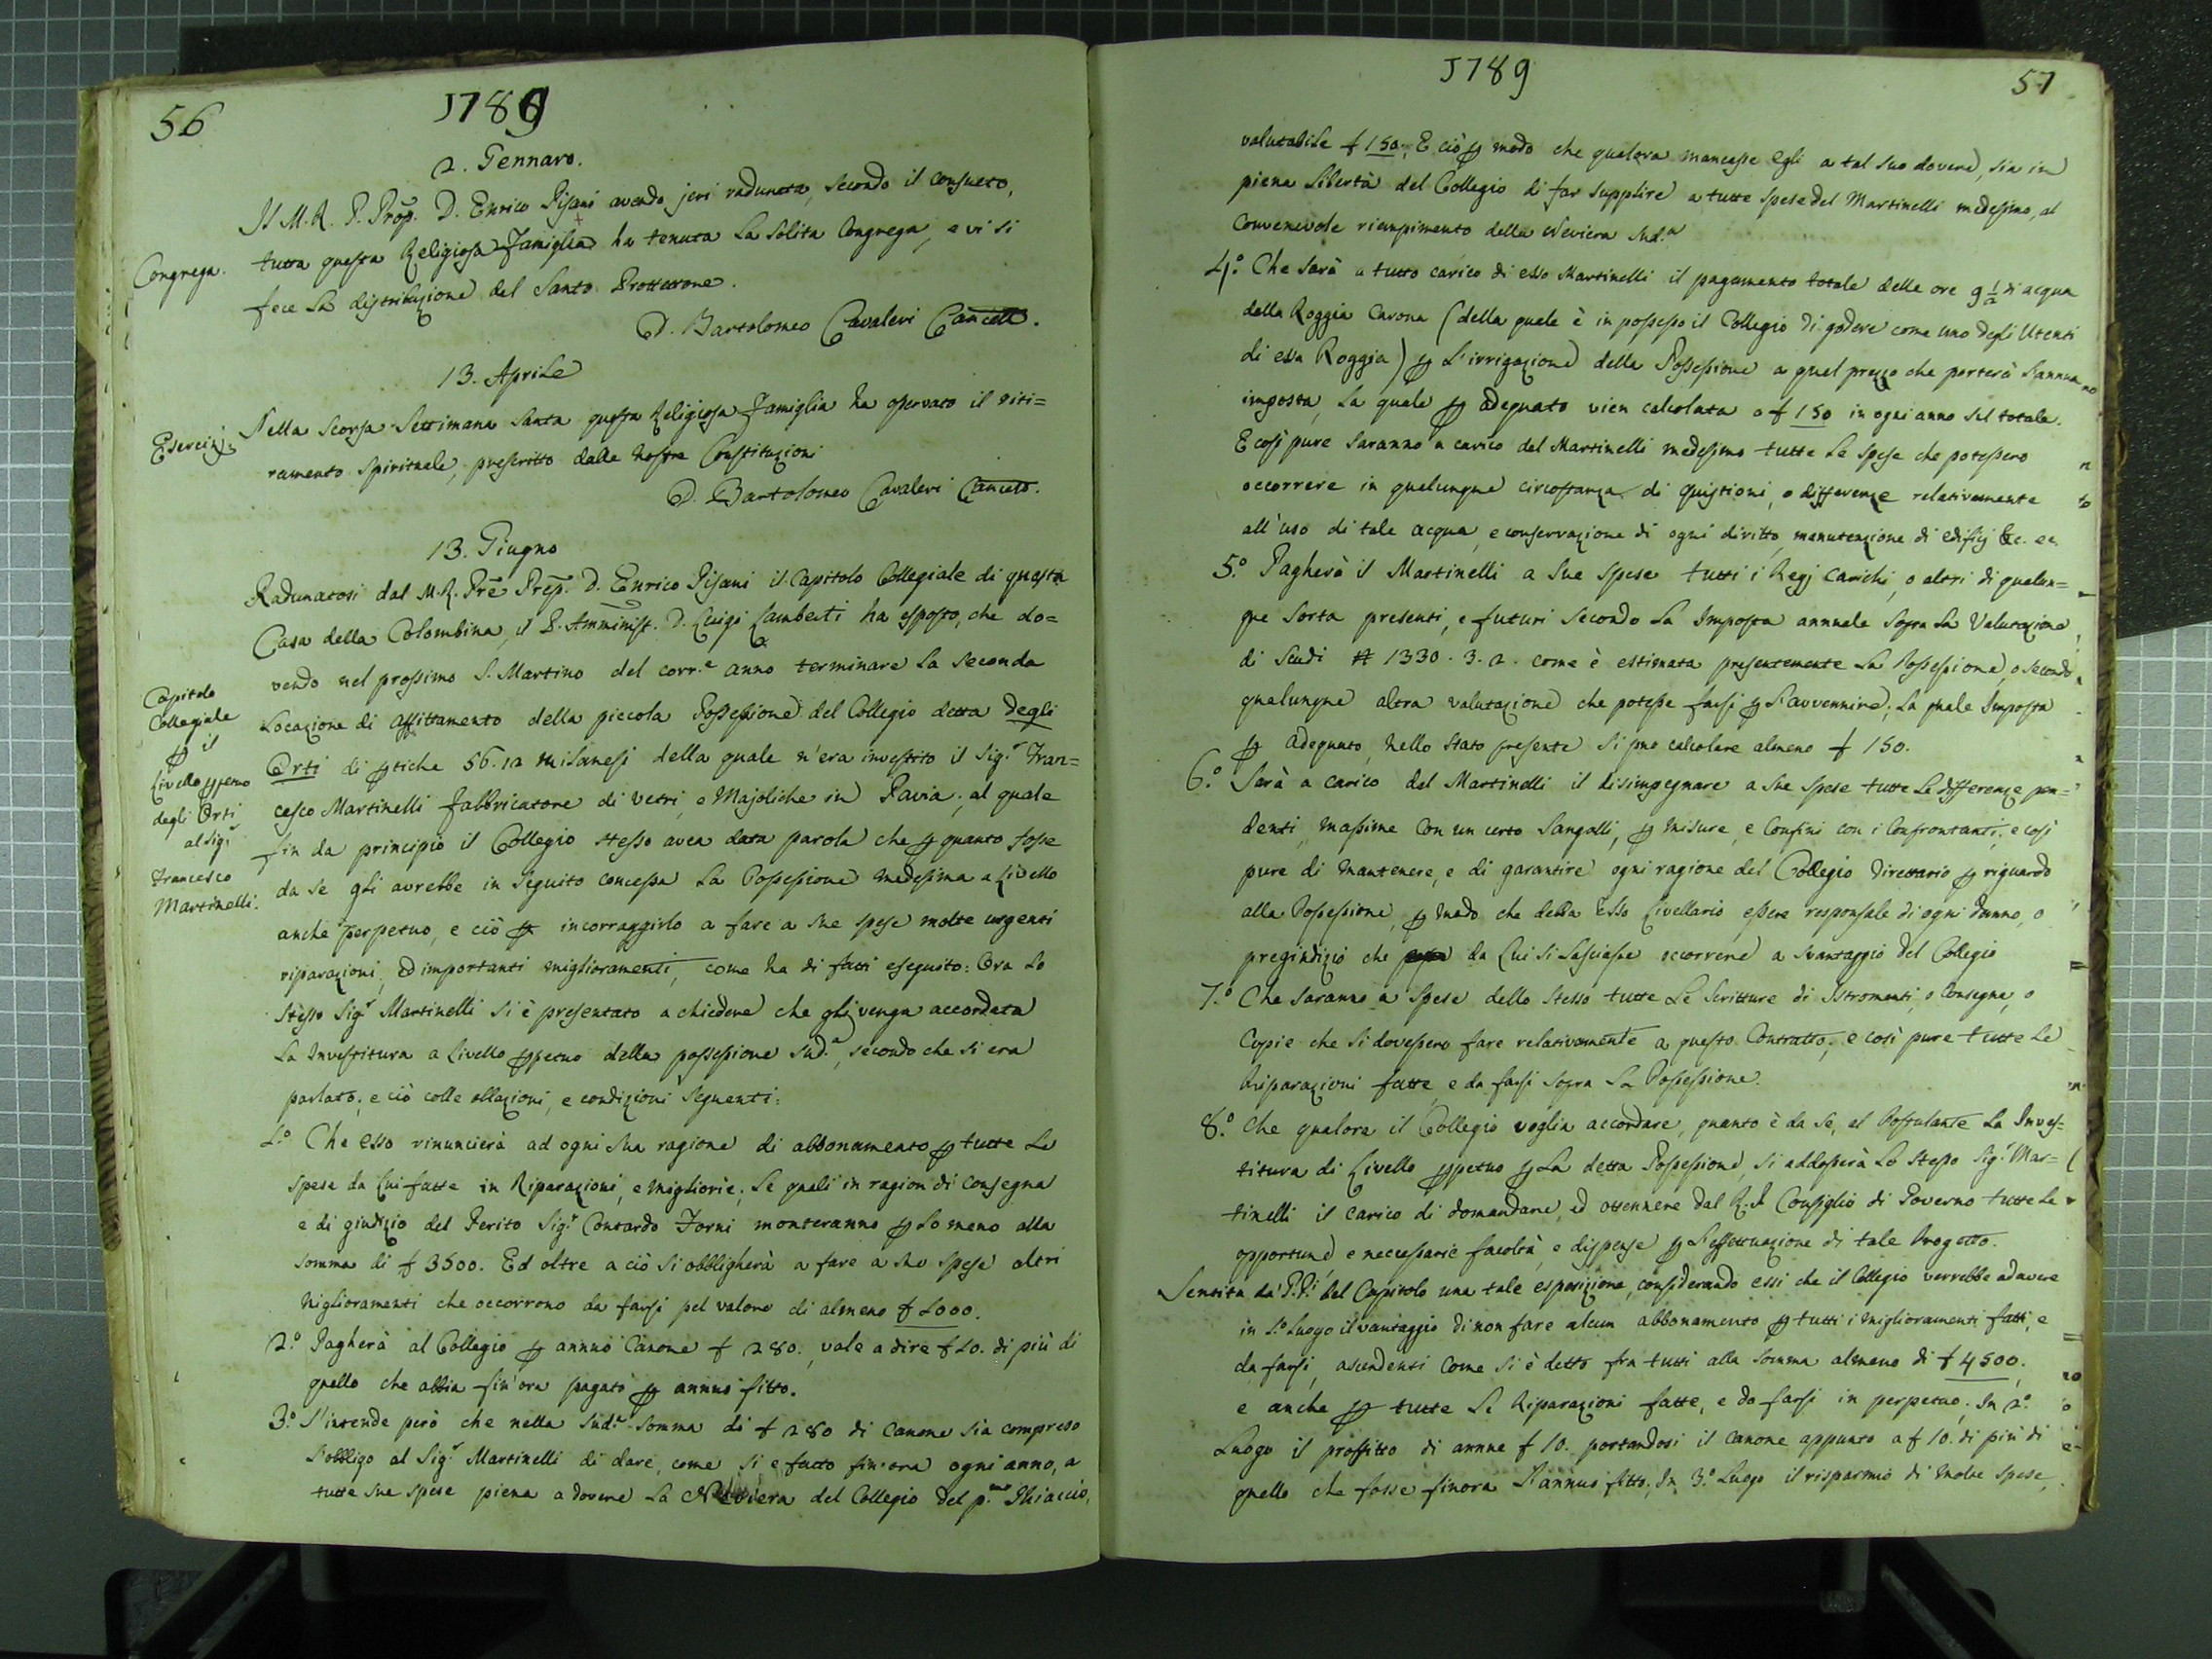 56
1789
2. Gennaro.
Il M. R. P. Prep. D. Enrico Pisani avendo jeri radunata, secondo il consueto,
Congrega.
tutta questa Religiosa Famiglia ha tenuta la solita Congrega, e vi si
fece la distribuzione del Santo Protettore.
D. Bartolomeo Cavaleri Cancell.
13. Aprile
Esercizj
Nella scorsa Settimana Santa questa Religiosa Famiglia ha osservato il riti=
ramento spirituale, prescritto dalle nostre Constituzioni
D. Bartolomeo Cavaleri Cancell.
13. Giugno
Radunatosi dal M. R. Pre Prep. D. Enrico Pisani il Capitolo Collegiale di questa
Casa della Colombina, il P. Amminist. D. Luigi Lamberti ha esposto, che do=
vendo nel prossimo S. Martino del corr.e anno terminare la seconda
Capitolo
Collegiale
ꝑ il
Livello ꝑpetuo
degli Orti
al Sigr
Francesco
Martinelli.
Locazione di affittamento della piccola Possessione del Collegio detta degli
Orti di ꝑtiche 56. 12 milanesi della quale n'era investito il Sig.r Fran=
cesco Martinelli fabbricatore di vetri, e Majoliche in Pavia; al quale
fin da principio il Collegio stesso avea data parola che ꝑ quanto fosse
da se gli avrebbe in seguito concessa la Possessione medesima a Livello
anche perpetuo, e ciò ꝑ incorraggirlo a fare a sue spese molte urgenti
riparazioni, ed importanti miglioramenti, come ha di fatti eseguito: Ora lo
stesso Sigr Martinelli si è presentato a chiedere che gli venga accordata
la Investitura a Livello ꝑpetuo della possessione sud.a, secondo che si era
parlato; e ciò colle obblazioni, e condizioni seguenti:
1.o Che esso rinuncierà ad ogni sua ragione di abbonamento ꝑ tutte le
spese da lui fatte in Riparazioni, e migliorie; le quali in ragion di Consegna
e di giudizio del Perito Sig.r Contardo Forni monteranno ꝑ lo meno alla
somma di £ 3500. Ed oltre a ciò si obbligherà a fare a sue spese altri
miglioramenti che occorrono da farsi pel valore di almeno £ 1000.
2.o Pagherà al Collegio ꝑ annuo Canone £ 280., vale a dire £ 10. di più di
quello che abbia fin'ora pagato ꝑ annuo fitto.
3.o S'intende però che nella Sud.a somma di £ 280 di Canone sia compreso
l'obbligo al Sig.r Martinelli di dare, come si è fatto fin'ora ogni anno, a
tutte sue spese piena a dovere la Neviera del Collegio del p.mo Ghiaccio,
1789
57
valutabile £ 150; E ciò ꝑ modo che qualora mancasse egli a tal suo dovere, sia in
piena libertà del Collegio di far supplire a tutte spese del Martinelli medesimo, al
convenevole riempimento della Neviera sud.a
4.o Che sarà a tutto carico di esso Martinelli il pagamento totale delle ore 9 1/2 di acqua
della Roggia Carona (della quale è in possesso il Collegio di godere come uno degli Utenti
di essa Roggia) ꝑ l'irrigazione della Possessione a quel prezzo che porterà l'annua
imposta, la quale ꝑ adequato vien calcolata a £ 150 in ogni anno sul totale.
E così pure saranno a carico del Martinelli medesimo tutte le spese che potessero
occorrere in qualunque circostanza di quistioni, o differenze relativamente
all'uso di tale acqua, e conservazione di ogni diritto, manutenzione di edificj &c. ec.
5.o Pagherà il Martinelli a sue spese tutti i Regj Carichi, o altri di qualun=
que sorta presenti, e futuri secondo la Imposta annuale sopra la Valutazione
di Scudi # 1330. 3. 2. come è estimata presentemente la Possessione, o secondo
qualunque altra valutazione che potesse farsi ꝑ l'avvenire; la quale Imposta
ꝑ adequato, nello stato presente si può calcolare almeno £ 150.
6.o Sarà a carico del Martinelli il disimpegnare a sue spese tutte le differenze pen=
denti, massime con un certo Sangalli, ꝑ misure, e Confini con i Confrontanti; e così
pure di mantenere, e di garantire ogni ragione del Collegio direttario ꝑ riguardo
alla Possessione, ꝑ modo che debba esso Livellario essere responsale di ogni danno, o
pregiudizio che da lui si lasciasse occorrere a svantaggio del Collegio
7.o Che saranno a spese dello stesso tutte le Scritture di Istromenti, o Consegne, o
Copie che si dovessero fare relativamente a questo Contratto; e così pure tutte le
Riparazioni fatte, e da farsi sopra la Possessione.
8.o Che qualora il Collegio voglia accordare, quanto è da se, al Postulante la Inves=
titura di Livello ꝑpetuo ꝑ la detta Possessione, si addosserà lo stesso Sig.r Mar=
tinelli il carico di domandare, ed ottennere dal R. I. Consiglio di Governo tutte le
opportune, e necessarie facoltà, e dispense ꝑ l'effettuazione di tale Progetto.
Sentita da' P.P.i del Capitolo una tale esposizione, considerando essi che il Collegio verrebbe ad avere
in 1.o Luogo il vantaggio di non fare alcun abbonamento ꝑ tutti i miglioramenti fatti, e
da farsi, ascendenti come si è detto fra tutti alla somma almeno di £ 4500;
e anche ꝑ tutte le Riparazioni fatte, e da farsi in perpetuo; In 2.o
Luogo il proffitto di annue £ 10. portandosi il Canone appunto a £ 10. di più di
quello che fosse finora l'annuo fitto; In 3.o Luogo il risparmio di molte spese,